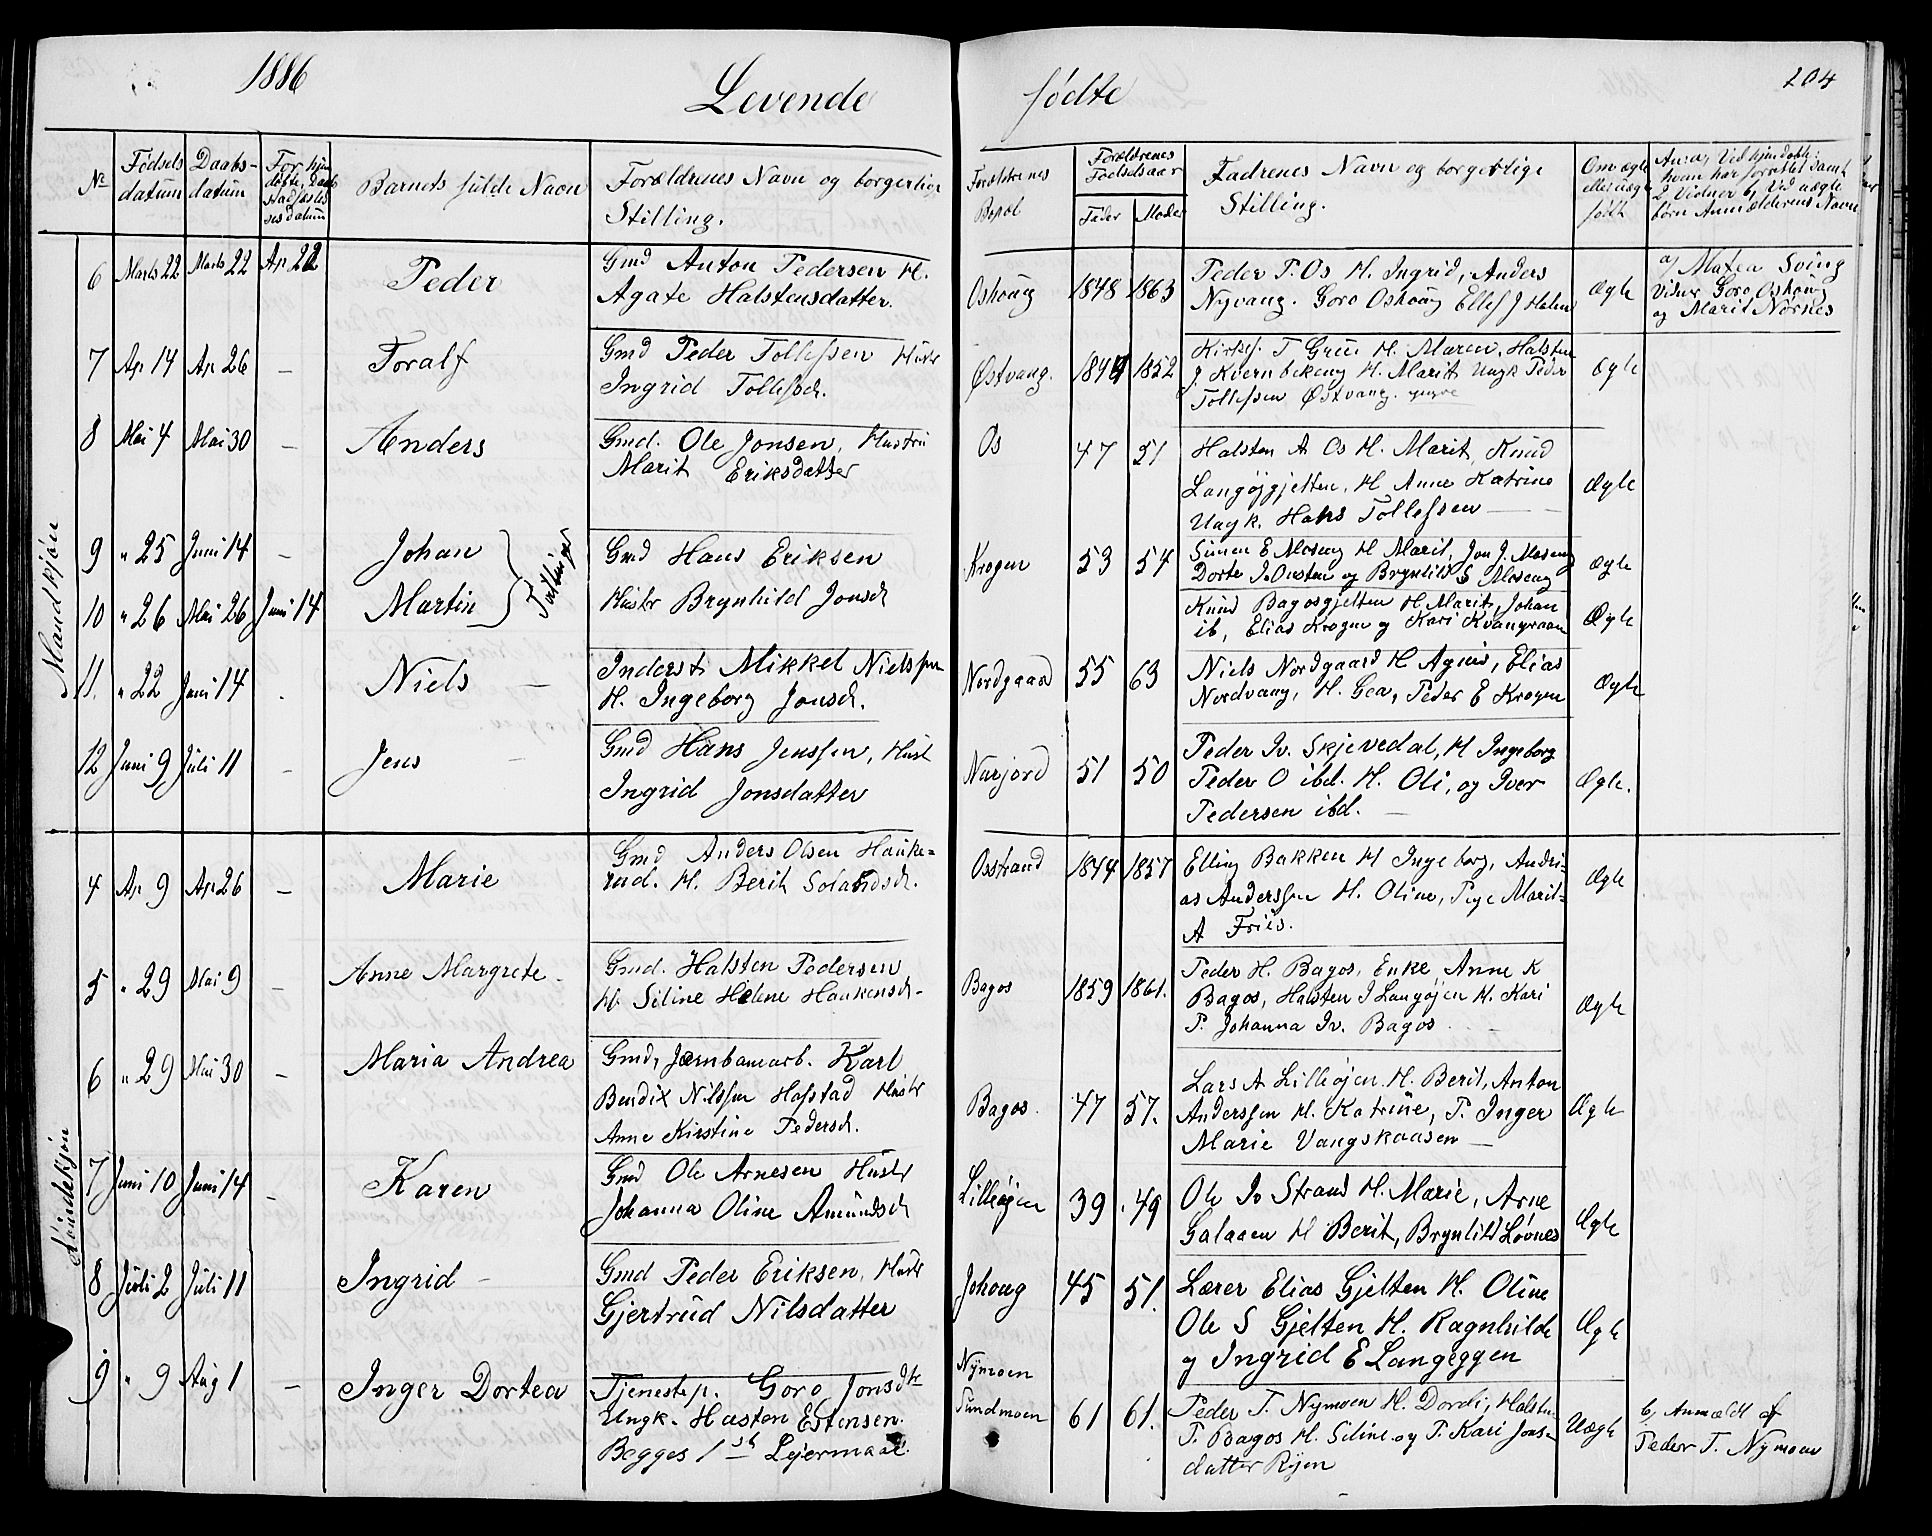 1886
Levende
fødte
204
No
Fødsels datum
Daabs-datum
Barnets fulde Navn
Forældrenes Navn og borgerlige Stilling.
Forældrenes Bopæl
Forældrenes Fødselsaar
Fader
Moder
Faddrenes Navn og borgerlige Stilling.
Om ægte eller uægte født
Mandkjøn
6 Marts 22 Marts 22 Ap 22 Peder
Gmd Anton Pedersen H.
Agate Halstensdatter.
Oshoug 1848 1863
Peder P. Os H. Ingrid, Anders
Nyvang. Goro Oshoug Ellef J Holm
Ægte
a) Matea Sving
Vidner Goro Oshoug
og Marit Nornes
7 Ap 14 Ap 26 — Toralf
Gmd Peder Tollefsen Hustr
Ingrid Tollefsdr.
Østvang. 1849 1852
Kirkes. T Grue H. Maren, Halsten
J. Kvernbekeng H. Marit Ungk Peder
Tollefsen Østvang. yngre
Ægte
8 Mai 4 Mai 30 — Anders
Gmd. Ole Jonsen, Hustru
Marit Eriksdatter
Os 47 51
Halsten A Os H. Marit, Knud
Langøjgjelten, H Anne Katrine
Ungk. Hans Tollefsen —
Ægte
9 " 25 Juni 14 — Johan
Tvillinger
Gmd Hans Eriksen
Krogen 53 54
Simen E Moseng H Marit, Jon J. Moseng
Dorte J. Onsten og Brynhild S Moseng
Ægte
10 " 26 Mai 26 Juni 14 Martin
Hustr Brynhild Jonsdr
Knud Bagosgjelten H. Marit, Johan
ib, Elias Krogen og Kari Kvangraan
Ægte
11. " 22 Juni 14 . Niels —
Inderst Mikkel Nielssen
H. Ingeborg Jonsdr.
Nordgaard 55 63
Niels Nordgaard H Agnis, Elias
Nordvang, H. Gea, Peder E Krogen
Ægte
12 Juni 9 Juli 11 — Jens —
Gmd Hans Jenssen, Hust
Ingrid Jonsdatter
Narjord 51 50
Peder Iv. Skjevedal, H Ingeborg
Peder O ibd. H. Oli, og Iver
Pedersen ibd. —
Ægte.
Kvindekjøn
4 Ap 9 Ap 26 — Marie
Gmd Anders Olsen Hauke=
rud. H. Berit
Osstrand 1844 1857
Elling Bakken H Ingeborg, Andri-
as Anderssen H. Oline, Pige Marit=
A Friis.
Ægte
5 " 29 Mai 9 — Anne Margrete -
Gmd. Halsten Pedersen
H. Siline Helene Haukensdr-
Bagos 1859 1861.
Peder H. Bagos, Enke Anne K
Bagos, Halsten J Langøjen H. Kari
P. Johanna Iv. Bagos
Ægte
6 " 29 Mai 30 — Maria Andrea
Gmd, Jærnbanearb. Karl
Bendix Nilssen Hofstad Hustr
Anne Kirstine Pedersdr.
Bagos. 47 57.
Lars A Lilleøjen H. Berit, Anton
Anderssen H. Katrine, P. Inger
Marie Vangskaasen —
Ægte
7 Juni 10 Juni 14 — Karen
Gmd Ole Arnesen Hustr
Johanna Oline Amundsdr
Lilleøjen 39 . 49
Ole Iv Strand H. Marie, Arne
Galaaen H Berit, Brynhild Løvnes
Ægte
8 Juli 2 Juli 11 Ingrid —
Gmd Peder Eriksen, Hustr
Gjertrud Nilsdatter
Johoug 45 51.
Lærer Elias Gjelten H. Oline
Ole S Gjelten H. Ragnhilde
og Ingrid E Langeggen
Ægte
9 " 9 Aug 1 — Inger Dortea
Tjenestep. Goro Jonsdtr
Ungk. Hasten Estensen.
Begges 1ste Lejermaal.
Nymoen
Sundmoen 61 61.
Peder T. Nymoen H. Dordi, Halsten
P. Bagos H. Siline og P. Kari Jons-
datter Ryen
Uægte
b, Anmeldt af
Peder T. Nymoen